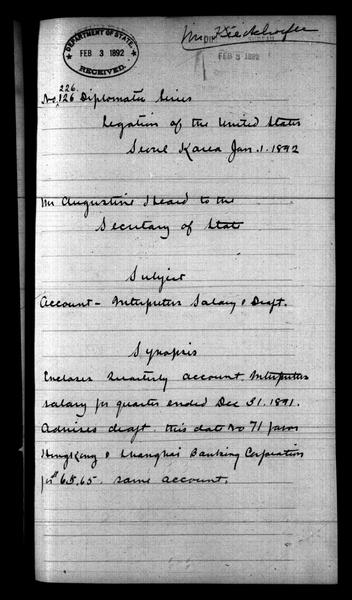 DEPARTMENT OF STATE,
FEB 3 1892
RECEIVED.
Mr Kieckhoefer
FEB 5 1892
226.
No. 126 Diplomatic Series
Legation of the United States
Seoul Korea Jan. 1. 1892
Mr Augustine Heard to the
Secretary of State
Subject
Account - Interpreters Salary & Draft.
Synopsis
Encloses Quarterly account, Interpreters
salary for quarter ended Dec 31. 1891.
Advises draft. this date No 71 favor
HongKong & Shanghai Banking Corporation
for 65.65. same account.